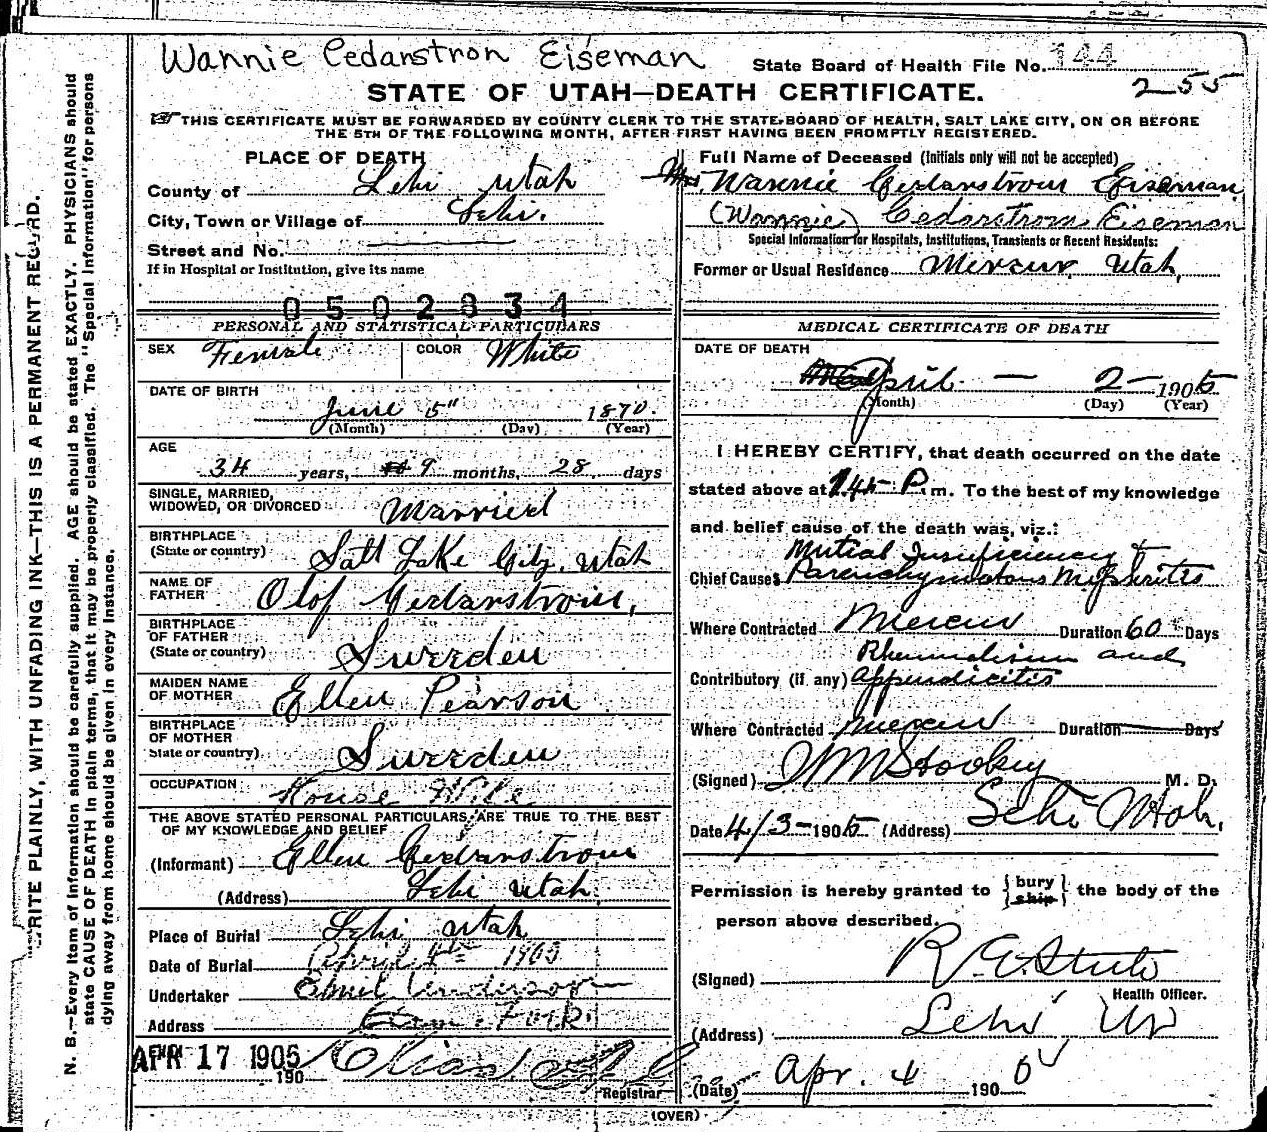 Wannie Cedarstron Eiseman
State Board of Health File No. 144
255
STATE OF UTAH—DEATH CERTIFICATE.
THIS CERTIFICATE MUST BE FORWARDED BY COUNTY CLERK TO THE STATE BOARD OF HEALTH, SALT LAKE CITY, ON OR BEFORE
THE 5TH OF THE FOLLOWING MONTH, AFTER FIRST HAVING BEEN PROMPTLY REGISTERED.
WRITE PLAINLY, WITH UNFADING INK—THIS IS A PERMANENT RECORD.
N. B.—Every item of information should be carefully supplied. AGE should be stated EXACTLY. PHYSICIANS should
state CAUSE OF DEATH in plain terms, that it may be properly classified. The "Special Information" for persons
dying away from home should be given in every instance.
PLACE OF DEATH
County of Lehi Utah
City, Town or Village of Lehi.
Street and No.
If in Hospital or Institution, give its name
0502834
PERSONAL AND STATISTICAL PARTICULARS
SEX Female COLOR White
DATE OF BIRTH
June 5" 1870.
(Month) (Day) (Year)
AGE
34 years, 9 months, 28 days
SINGLE, MARRIED,
WIDOWED, OR DIVORCED Married
BIRTHPLACE
(State or country) Salt Lake City, Utah
NAME OF
FATHER Olof Cedarstrom,
BIRTHPLACE
OF FATHER
(State or country) Sweeden
MAIDEN NAME
OF MOTHER Ellen Pearson
BIRTHPLACE
OF MOTHER
State or country) Sweeden
OCCUPATION House Wife
THE ABOVE STATED PERSONAL PARTICULARS ARE TRUE TO THE BEST
OF MY KNOWLEDGE AND BELIEF
(Informant) Ellen Cedarstrom
(Address) Lehi Utah.
Place of Burial Lehi Utah
Date of Burial April 4th 1905
Undertaker Anderson
Address Am. Fork
APR 17 1905
190
Registrar
Full Name of Deceased (Initials only will not be accepted)
Mrs. Wannie Cedarstrom Eiseman
(Wannie) Cedarstrom Eiseman
Special Information for Hospitals, Institutions, Transients or Recent Residents:
Former or Usual Residence Mercur Utah,
MEDICAL CERTIFICATE OF DEATH
DATE OF DEATH
April — 2— 1905
(Month) (Day) (Year)
I HEREBY CERTIFY, that death occurred on the date
stated above at 1.45 P. m. To the best of my knowledge
and belief cause of the death was, viz.:
Mitral Insuficiency &
Chief Cause Parenchymatous Nephritis
Where Contracted Mercur Duration 60 Days
Rheumatism and
Contributory (if any) Appendicitis
Where Contracted Mercur Duration Days
(Signed) M. D.
Date 4/3-1905 (Address) Lehi Utah.
Permission is hereby granted to { bury ship } the body of the
person above described.
(Signed)
Health Officer.
(Address) Lehi Ut
(Date) Apr. 4 190
(OVER)